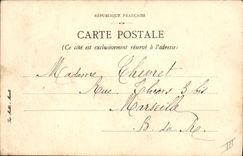 RÉPUBLIQUE FRANÇAISE
CARTE POSTALE
(Ce côté est exclusivement réservé à l'adresse)
Madame Chevret
Rue Thiers 3 bis
Marseille
B. du R.